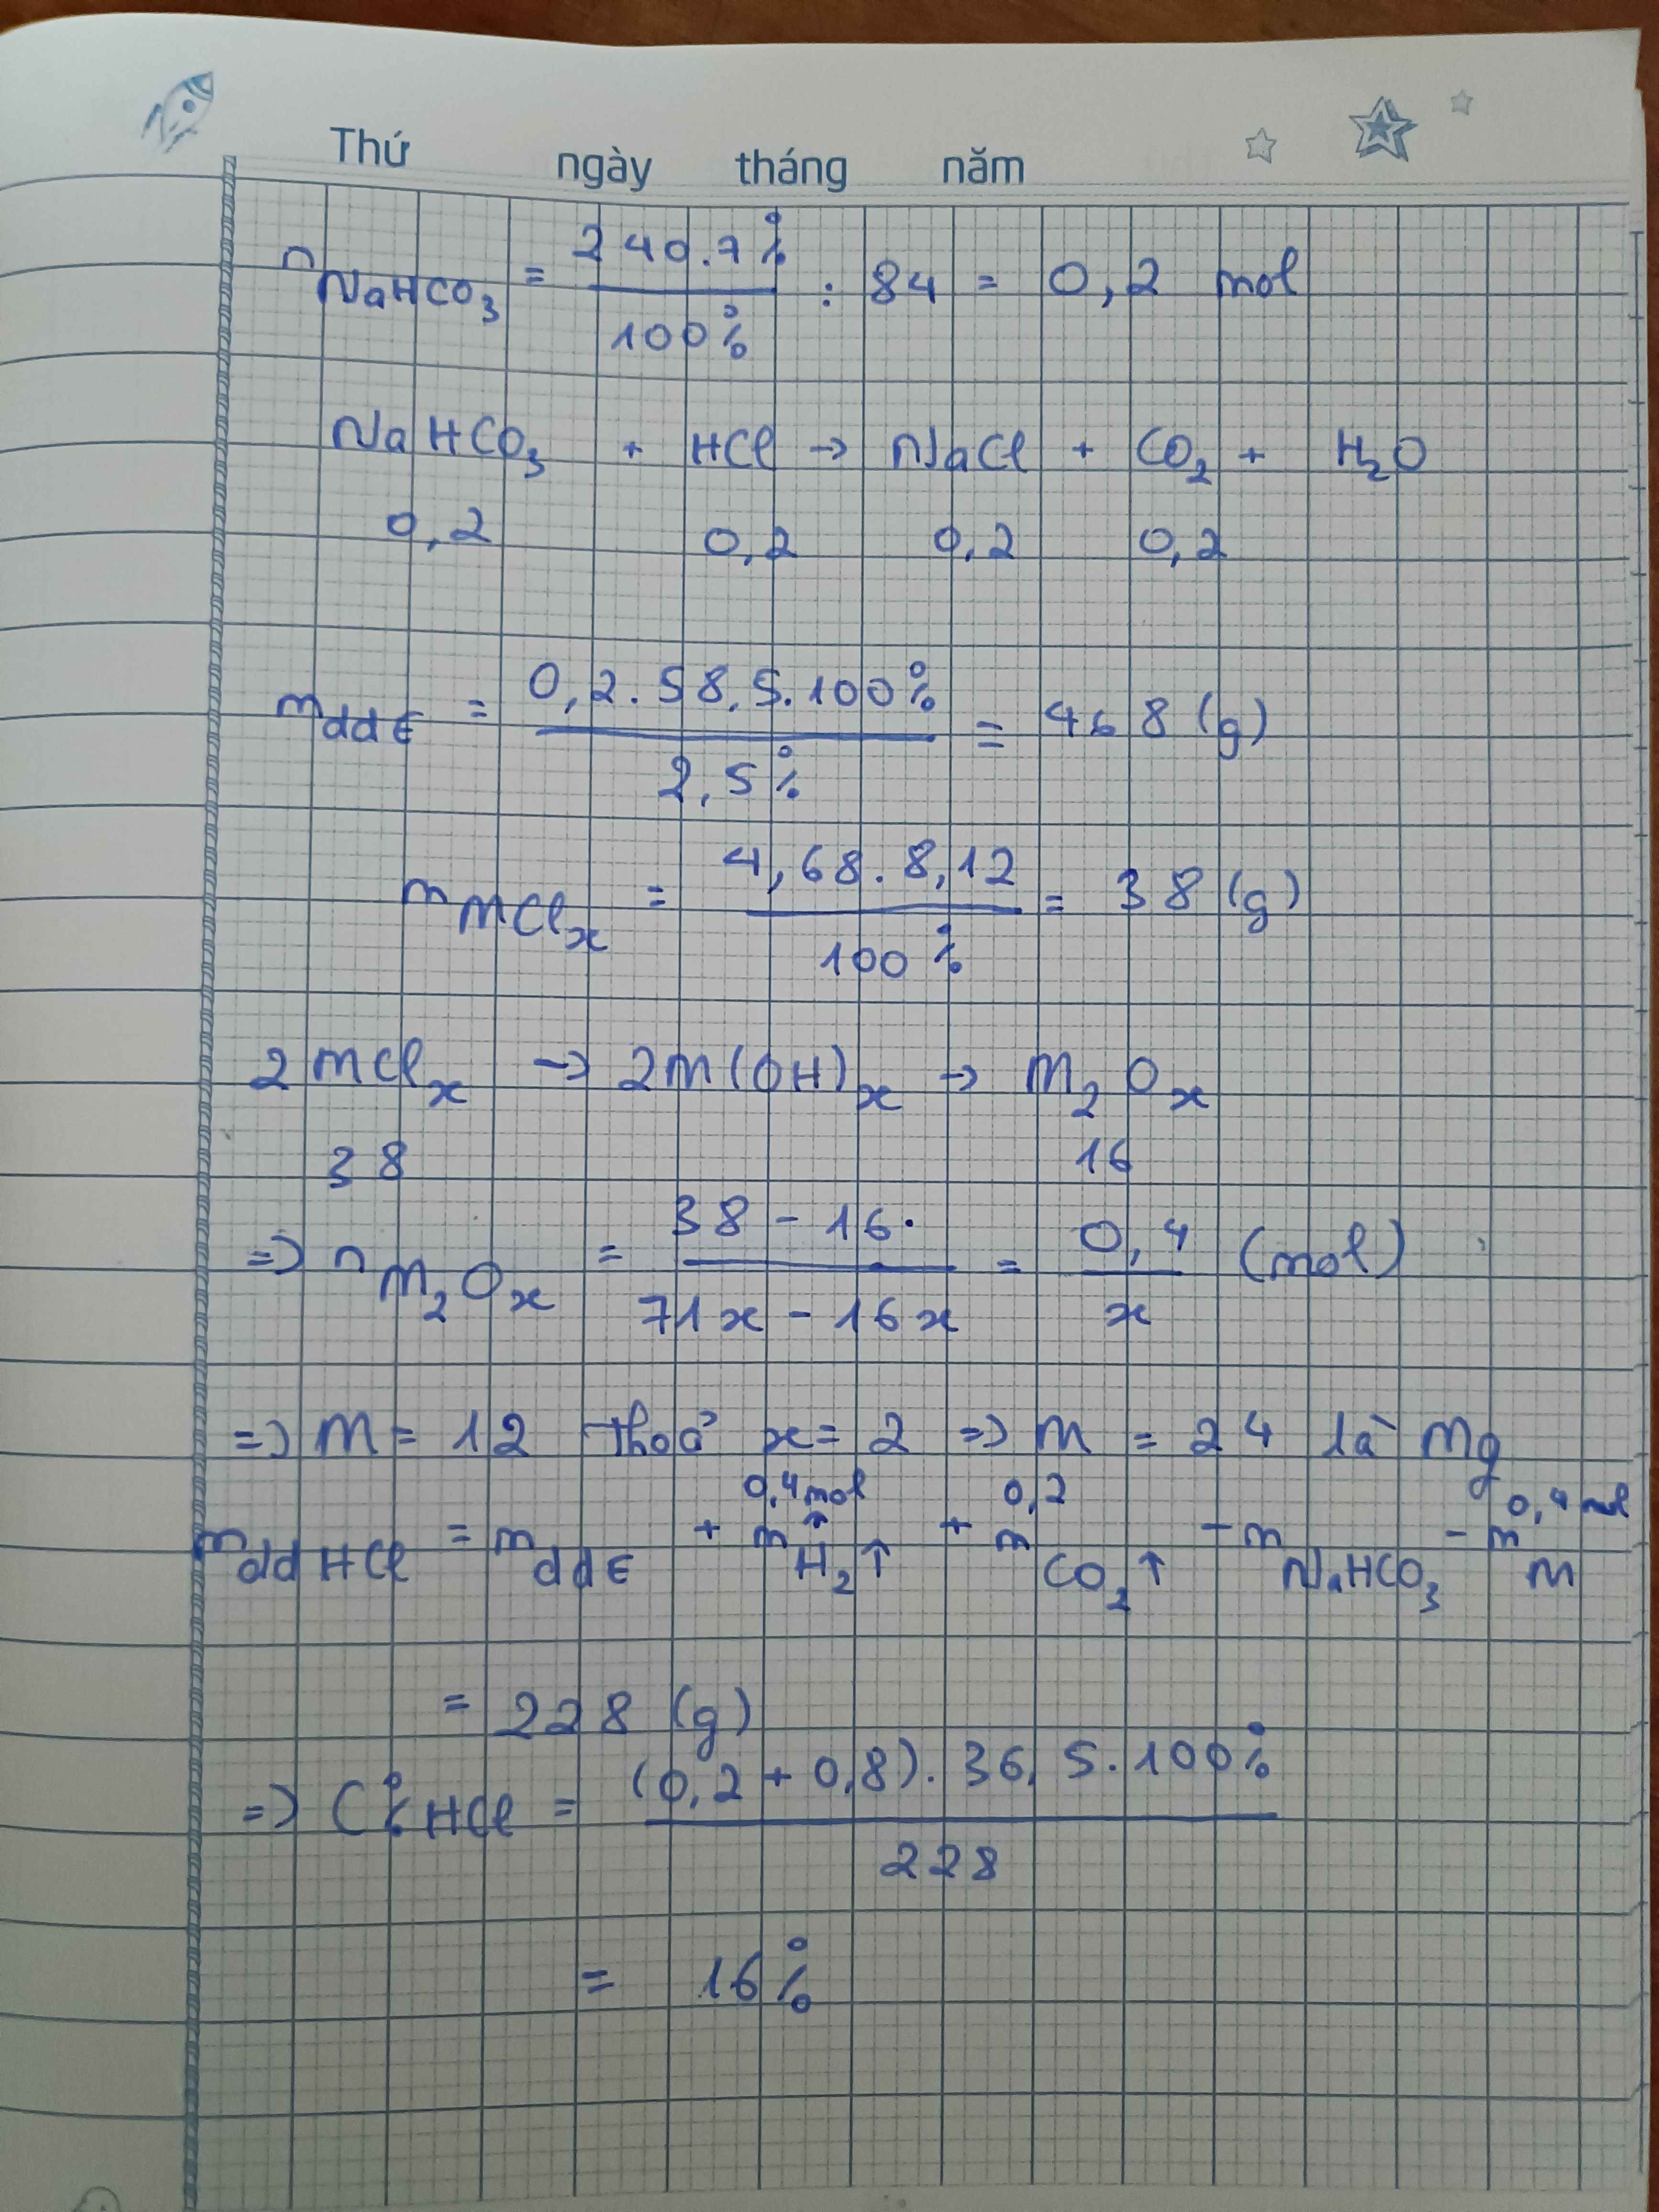 Thứ ngày tháng năm
n NaHCO₃ = 240.7% / 100% : 84 = 0,2 mol
NaHCO₃ + HCl → NaCl + CO₂ + H₂O
0,2 0,2 0,2 0,2
m ddE = 0,2.58,5.100% / 2,5% = 468 (g)
m MClₓ = 4,68.8,12 / 100% = 38 (g)
2MClₓ → 2M(OH)ₓ → M₂Oₓ
38 16
=> n M₂Oₓ = 38 - 16. / 71x - 16x = 0,4 / x (mol)
=> M = 12 thoả x = 2 => M = 24 là Mg
0,4 mol 0,2 0,4 mol
m ddHCl = m ddE + m H₂↑ + m CO₂↑ - m NaHCO₃ - m M
= 228 (g)
=> C% HCl = (0,2 + 0,8).36,5.100% / 228
= 16%